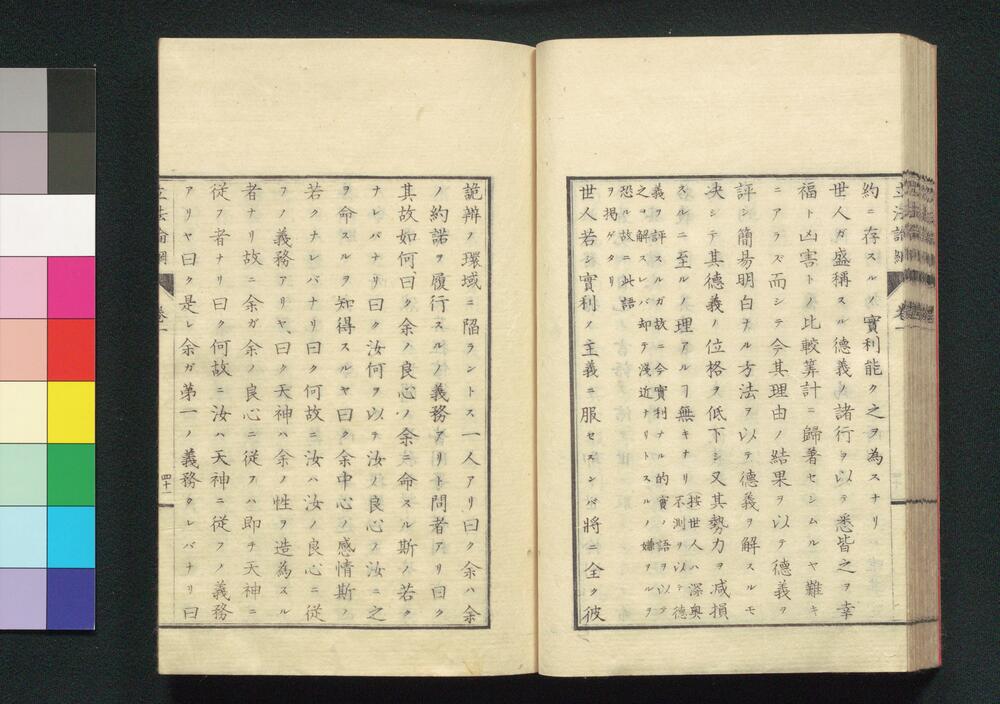 約ニ存スルノ實利能ク之ヲ為スナリ
世人ガ盛稱スル德義ノ諸行ヲ以テ悉皆之ヲ幸
福ト凶害トノ比較筭計ニ歸著セシムルヤ難キ
ニアラズ而シテ今其理由ノ結果ヲ以テ德義ヲ
評シ簡易明白ナル方法ヲ以テ德義ヲ解スルモ
決シテ其德義ノ位格ヲ低下シ又其勢力ヲ減損
スルニ至ルノ理アルヿ無キナリ
按世人ハ深奥
不測ヲ以テ德
義ヲ評スルガ故ニ今實利ナル的實ノ語ヲ以テ
之ヲ解スレバ却テ淺近ナリトスルノ嫌ヲルヲ
恐ル故ニ此語
ヲ掲ゲタリ
世人若シ實利ノ主義ニ服セズンバ將ニ全ク彼
詭辨ノ環域ニ陥ラントス一人アリ曰ク余ハ余
ノ約諾ヲ履行スルノ義務アリト問者アリ曰ク
其故如何曰ク余ノ良心ノ余ニ命スル斯ノ若ク
ナレバナリ曰ク汝何ヲ以テ汝ノ良心ノ汝ニ之
ヲ命スルヲ知得スルヤ曰ク余中心ノ感情斯ノ
若クナレバナリ曰ク何故ニ汝ハ汝ノ良心ニ從
フノ義務アリヤ曰ク天神ハ余ノ性ヲ造為スル
者ナリ故ニ余ガ余ノ良心ニ從フハ即チ天神ニ
從フ者ナリ曰ク何故ニ汝ハ天神ニ從フノ義務
アリヤ曰ク是レ余ガ第一ノ義務タレバナリ曰
立法論綱
卷一
四十一